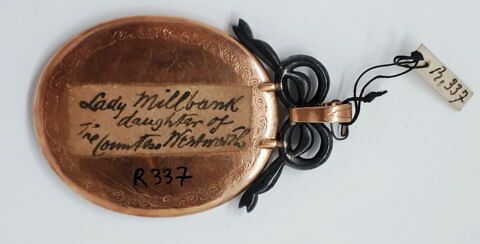 Lady Millbank
daughter of
The Countess Wentworth
R337
R.337